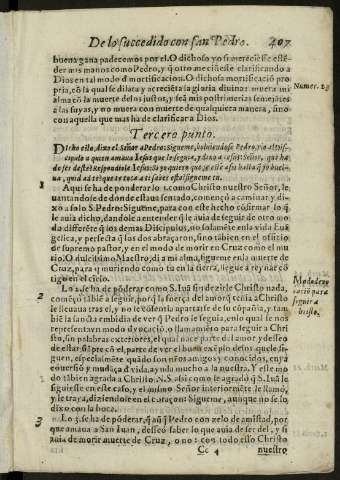 De lo succedido con san Pedro. 407
buena gana padecemos por el. O dichoso yo si mereciesse estē
der mis manos como Pedro, y q̄ otro me ciñesse clarificando a
Dios en tal modo d̄ mortificacion. O dichosa mortificaciō pro
pria, cō la qual se dilata y acreciēta la gloria diuina: muera mi
alma cō la muerte de los justos, y seā mis postrimerias semejātes
a las suyas, y no muera con muerte de qualquiera manera, sino
con aquella que mas ha de clarificar a Dios.
Numer. 23
Tercero punto.
DIcho esto, dixo el Señor a Pedro: Sigueme, boluiendose Pedro, vio al disci
cipulo a quien amaua Iesus que lo seguia, y dixo a
1 Aqui se ha de ponderar lo 1. como Christo nuestro Señor, le
uantandose de donde estaua sentado, començò a caminar, y di
xo a solo S. Pedro: Sigueme, para con este hecho cōfirmar lo q̄
le auia dicho, dandole a entender q̄ le auia de seguir de otro mo
do differēte q̄ los demas Discipulos, no solamēte en la vida Euā
gelica, y perfectiō q̄ los dos abraçaron, sino tābien en el officio
de supremo pastor, y en el modo de morir en Cruz como el mu
rio. O dulcissimo Maestro, di a mi alma, sigueme en la muerte de
Cruz, para q̄ muriendo como tu en la tierra, llegue à reynar cō
tigo en el cielo.
2 Lo 2. se ha de pōderar como S. Iuā sin dezirle Christo nada,
començò tābiē a seguir, porq̄ la fuerça del amor q̄ tenia a Christo
le lleuaua tras el, y no le dexaua apartarse de su cōpañia, y tam
biē la sancta embidia de ver q̄ Pedro le seguia, en lo qual se nos
representa vn nueuo modo d̄ vocaciō, o llamamiēto para seguir a Chri
sto, sin palabras exteriores, el qual nace parte de amor y desseo
de estar siēpre cō el, parte de ver el buen exēplo de los que le si-
guen, especialmēte quādo son nños amigos y conocidos, cuya
cōuersiō y mudāça d̄ vida, ayuda mucho a la nuestra. Y este mo
do tābien agrada a Christo N. S. assi como le agradò q̄ S. Iuā le
siguiesse en este caso, y el mismo Señor interiormēte le llamò,
y le traya, diziendole en el coraçon: Sigueme, aunque no se lo
dixo con la boca.
Modo de vo
caciō para
seguir a
Christo.
3 Lo 3. se ha de pōderar, q̄ aun q̄ Pedro con zelo de amistad, por
que amaua a San Iuan, desseò saber lo que auia de ser del, y si
auia de morir muerte de Cruz, o no: con todo esso Christo
Cc 4 nuestro